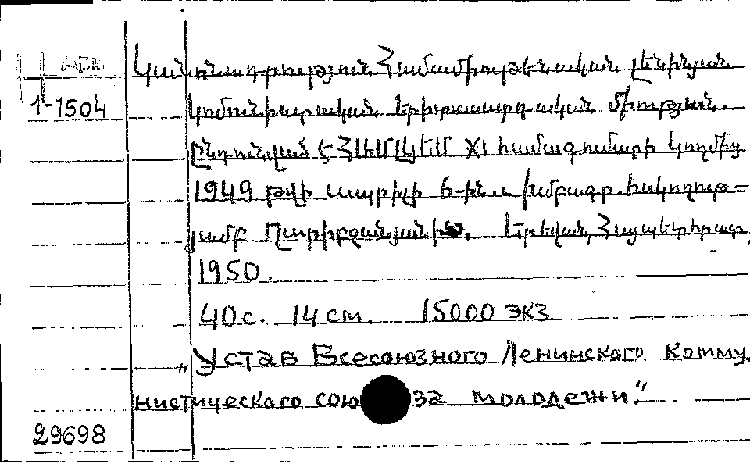 Կանոնադրություն Համամիութենական լենինյան
1-1504 կոմունիստական երիտասարդական միության.
Ընդունված է ՀԼԿԵՄ XI համագումարի կողմից
1949 թվի ապրիլի 6-ին. խմբագր. հսկողությ-
յամբ Երևան, Հայպետհրատ,
1950.
40с. 14 cm. 15000 экз
„Устав Всесоюзного Ленинского Комму
нистического союза молодежи."
29698